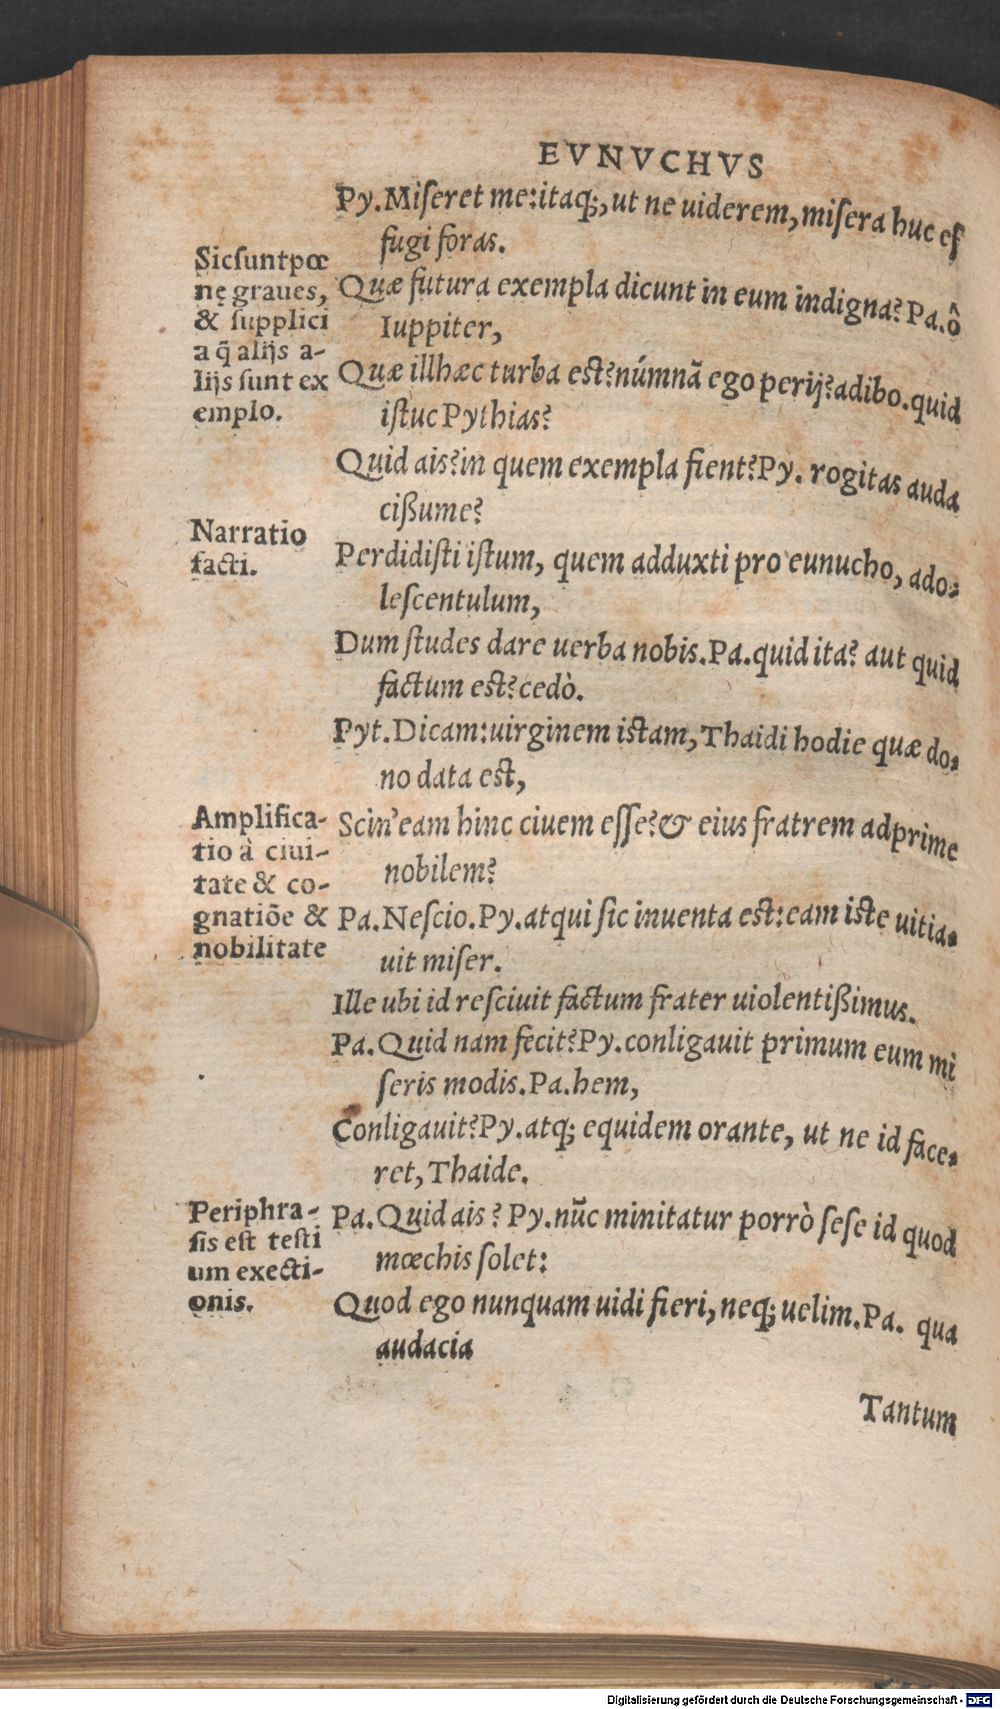 EVNVCHVS
Py. Miſeret me: itaq;, ut ne uiderem, miſera huc ef
fugi foras.
Quæ futura exempla dicunt in eum indigna? Pa. ô
Iuppiter,
Quæ illhæc turba eſt? númnā ego perij? adibo. quid
iſtuc Pythias?
Quid ais? in quem exempla fient? Py. rogitas auda
cißume?
Perdidiſti iſtum, quem adduxti pro eunucho, ado-
leſcentulum,
Dum ſtudes dare uerba nobis. Pa. quid ita? aut quid
factum eſt? cedò.
Pyt. Dicam: uirginem iſtam, Thaidi hodie quæ do-
no data eſt,
Scin' eam hinc ciuem eſſe? & eius fratrem adprime
nobilem?
Pa. Neſcio. Py. atqui ſic inuenta eſt: eam iſte uitia-
uit miſer.
Ille ubi id reſciuit factum frater uiolentißimus.
Pa. Quid nam fecit? Py. conligauit primum eum mi
ſeris modis. Pa. hem,
Conligauit? Py. atq; equidem orante, ut ne id face-
ret, Thaide.
Pa. Quid ais? Py. nūc minitatur porrò ſeſe id quod
mœchis ſolet:
Quod ego nunquam uidi fieri, neq; uelim. Pa. qua
audacia
Tantum
Sic ſunt pœ
nę graues,
& ſupplici
a q̃ alijs a-
lijs ſunt ex
emplo.
Narratio
facti.
Amplifica-
tio à ciui-
tate & co-
gnatiõe &
nobilitate
Periphra-
ſis eſt teſti
um execti-
onis.
Digitalisierung gefördert durch die Deutsche Forschungsgemeinschaft - DFG